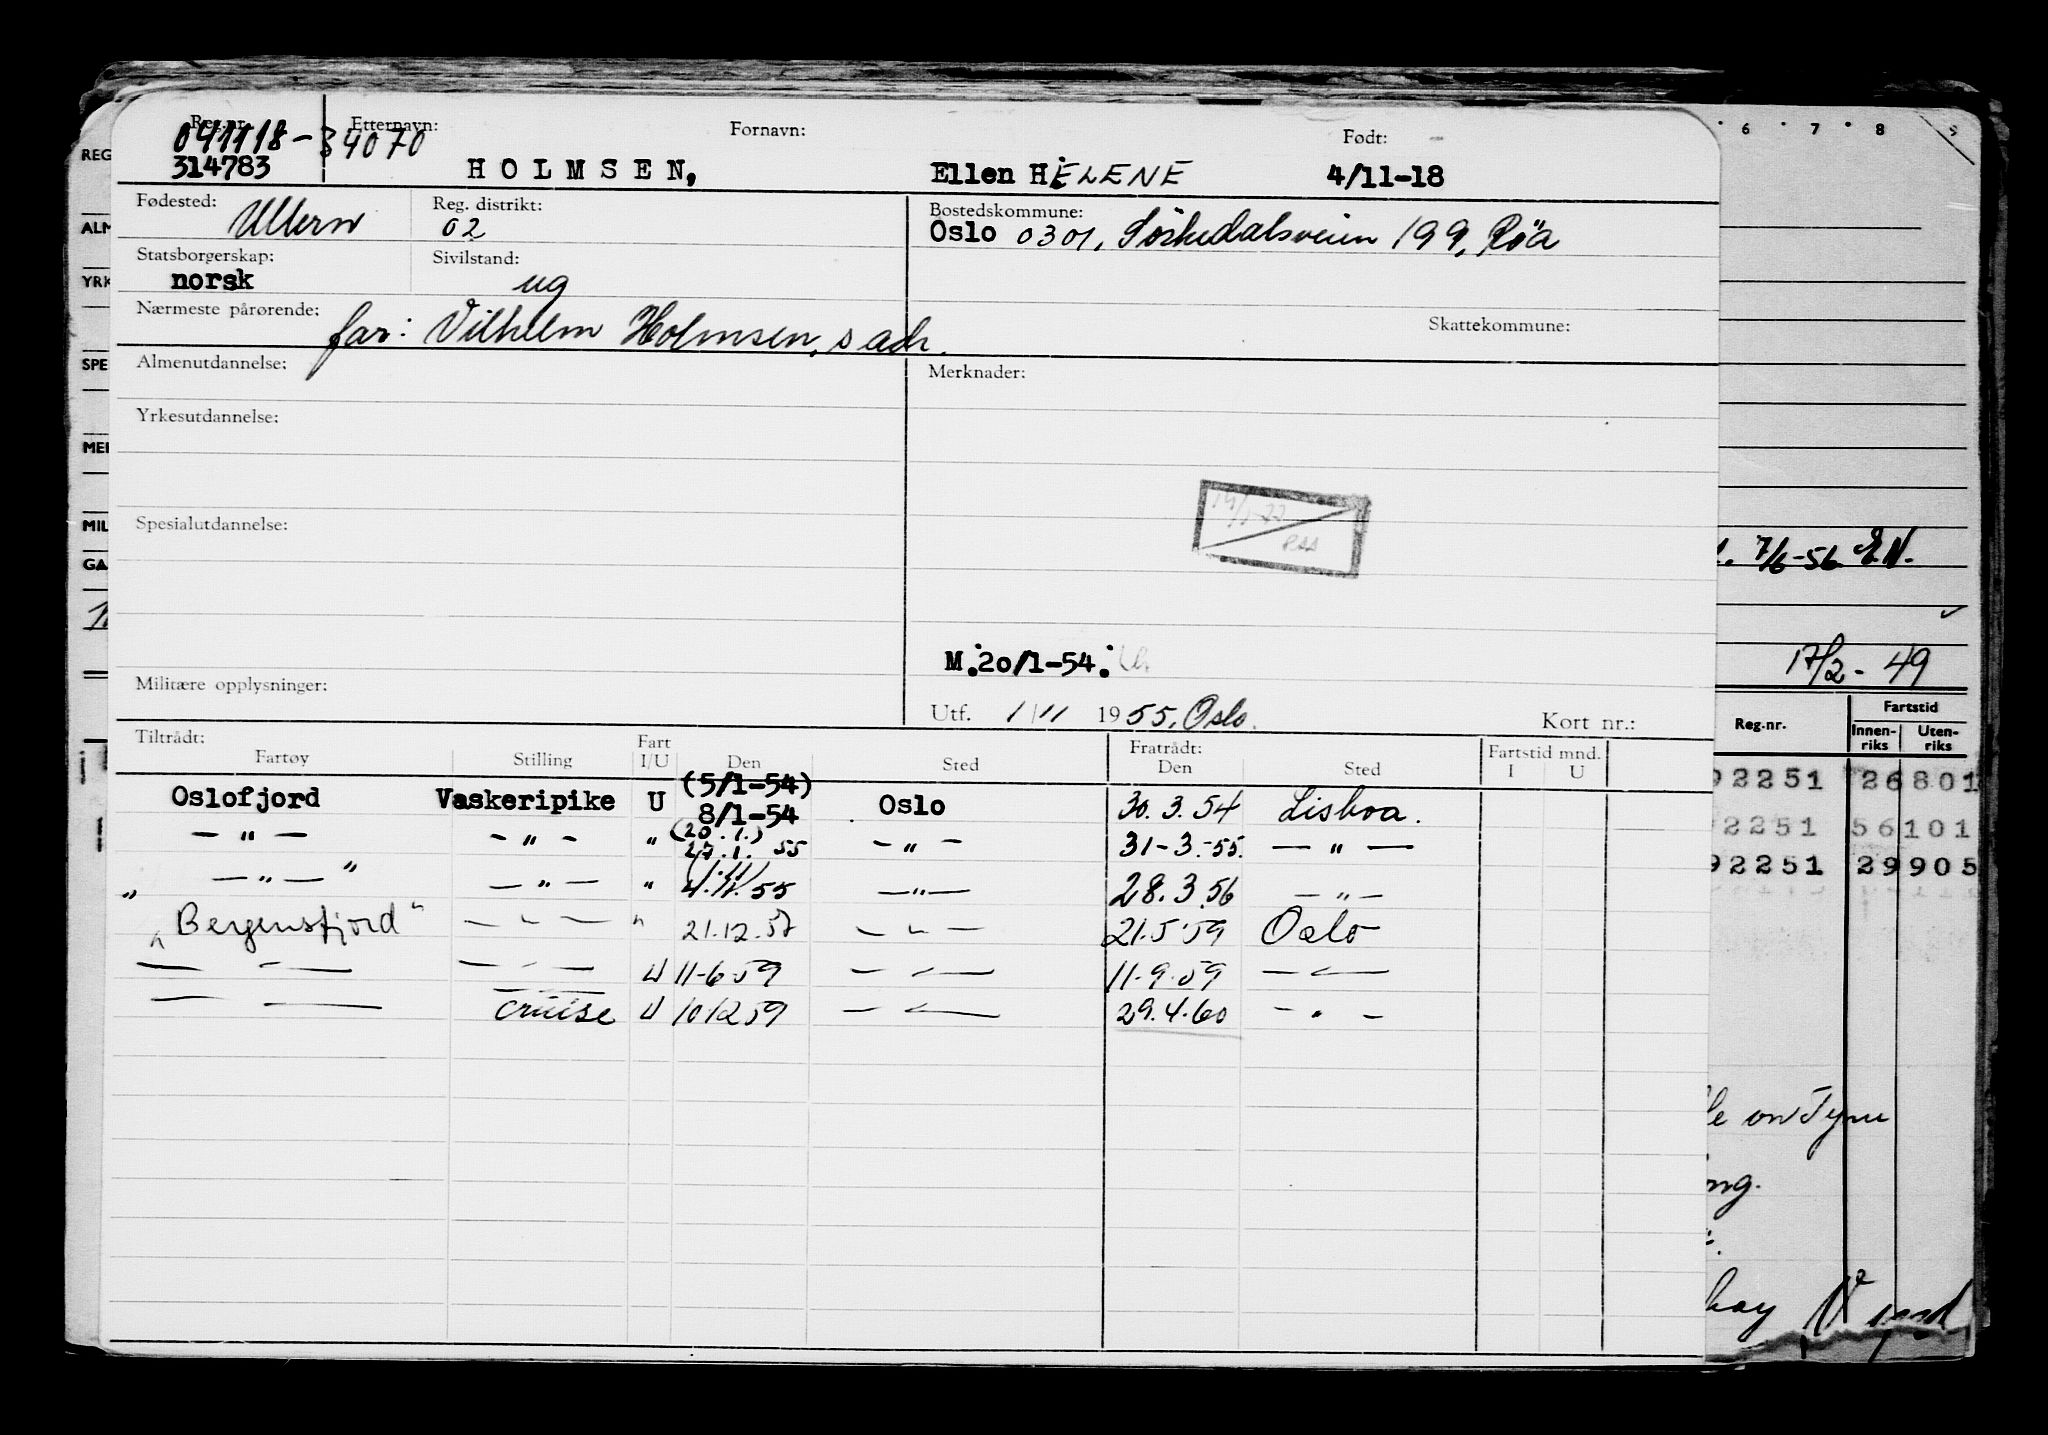 Reg.nr. Etternavn: Fornavn: Født:
041118-34070
314783 HOLMSEN, Ellen HELENE 4/11-18
Fødested: Ullern Reg. distrikt: 02 Bostedskommune: Oslo 0301, Sörkedalsveien 199, Röa
Statsborgerskap: norsk Sivilstand: ug
Nærmeste pårørende: far: Vilhelm Holmsen, s adr. Skattekommune:
Almenutdannelse: Merknader:
Yrkesutdannelse:
Spesialutdannelse:
M.20/1-54.
Militære opplysninger:
Utf. 1/11 1955, Oslo. Kort nr.:
Tiltrådt: Fratrådt:
Fartøy Stilling Fart I/U Den Sted Den Sted Fartstid mnd. I U
(5/1-54)
Oslofjord Vaskeripike U 8/1-54 Oslo 30.3.54 Lisboa.
(20.1.)
— " — - " - " 27.1. 55 - " - 31-3.-55. — " —
(1.11)
" — " — " — " — " 4.11.55 — " — 28.3.56 — " —
"Bergensfjord" — " — " 21.12.57 — " — 21.5.59 Oslo
— " — — " — U 11-6.59 — " — 11-9.59 — " —
— " — — " — cruise U 10.12.59 — " — 29.4.60 - " -
REG
ALM
YRK
SPE
MEI
MIL
GA
6 7 8 9
7/6-56 E.N.
17/2-49
Reg-nr. Fartstid
Innen-riks Uten-riks
92251 26801
2251 56101
92251 29905
on Tyne